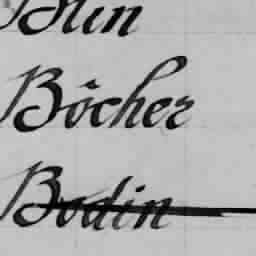 Blin
Bôcher
Bodin